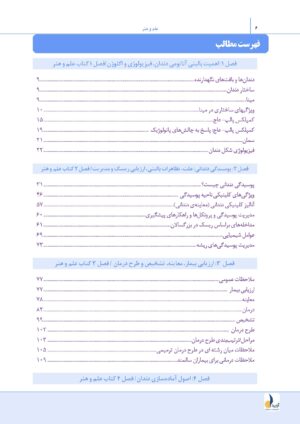 ۶
علم و هنر
فهرست مطالب
فصل ۱: اهمیت بالینی آناتومی دندان، فیزیولوژی و اکلوژن/ فصل ۱ کتاب علم و هنر
دندان‌ها و بافت‌های نگهدارنده ۹
ساختار دندان ۹
مینا ۹
ویژگی‌های ساختاری در مینا ۱۰
کمپلکس پالپ - عاج ۱۵
کمپلکس پالپ- عاج: پاسخ به چالش‌های پاتولوژیک ۱۹
سمان ۲۱
فیزیولوژی شکل دندان ۲۲
فصل ۲: پوسیدگی دندانی: علت، تظاهرات بالینی، ارزیابی ریسک و مدیریت/ فصل ۲ کتاب علم و هنر
پوسیدگی دندانی چیست؟ ۳۱
ویژگی‌های کلینیکی ناحیه پوسیدگی ۴۶
آنالیز کلینیکی دندانی (معاینه‌ی دندانی) ۵۷
مدیریت پوسیدگی و پروتکل‌ها و راهکارهای پیشگیری ۶۰
مداخله‌های براساس ریسک در بزرگسالان ۶۱
عوامل شیمیایی ۶۹
مدیریت پوسیدگی‌های ریشه ۷۳
فصل ۳: ارزیابی بیمار، معاینه، تشخیص و طرح درمان / فصل ۳ کتاب علم و هنر
ملاحظات عمومی ۷۷
ارزیابی بیمار ۷۷
معاینه ۷۸
درمان ۸۳
تشخیص ۹۹
طرح درمان ۱۰۲
مراحل/ترتیب‌بندی طرح درمان ۱۰۳
ملاحظات میان رشته ای در طرح درمان ترمیمی ۱۰۵
ملاحظات درمانی برای بیماران سالمند ۱۰۹
فصل ۴: اصول آماده‌سازی دندان/ فصل ۴ کتاب علم و هنر